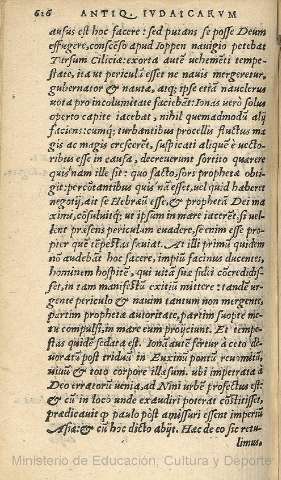 626 ANTIQ. IVDAICARVM
ausus est hoc facere: sed putans se posse Deum
effugere, conscēso apud Ioppen nauigio petebat
Tarsum Ciliciæ: exorta autē uchemēti tempe-
state, ita ut periculū esset ne nauis mergeretur,
gubernator & nautæ, atq; ipse etiā nauclerus
uota pro incolumitate faciebāt: Ionas uerò solus
operto capite iacebat, nihil quemadmodū alij
faciens: cumq; turbantibus procellis fluctus ma
gis ac magis crescerēt, suspicati aliquē è uecto-
ribus esse in causa, decreuerunt sortitò quærere
quis nam ille sit: quo facto, sors prophetā obti-
git: percōtantibus quis nā esset, uel quid haberet
negotij, ait se Hebræū esse, & prophetā Dei ma
ximi, cōsuluitq; ut ipsum in mare iacerēt, si uel-
lent præsens periculum euadere, se enim esse pro-
pter quē tēpestas sæuiat. At illi primū quidem
nō audebāt hoc facere, impiū facinus ducentes,
hominem hospitē, qui uitā suæ fidei cōcredidis-
set, in tam manifestū exitiū mittere: tandē urge-
ente periculo & nauim tantum non mergente,
partim prophetæ autoritate, partim suopte me-
tu compulsi, in mare eum proijciunt. Et tempe-
stas quidē sedata est. Ionā autē fertur à ceto de-
uoratū post triduū in Euxinū pontū reuomitū,
uiuū & toto corpore illæsum. ubi impetrata à
Deo erratorū uenia, ad Nini urbē profectus est:
& cū in loco unde exaudiri poterat cōstitisset,
prædicauit q paulo pòst amissuri essent imperiū
Asiæ: & cū hoc dicto abijt. Hæc de eo sic retu-
limus.
Ministerio de Educación, Cultura y Deporte